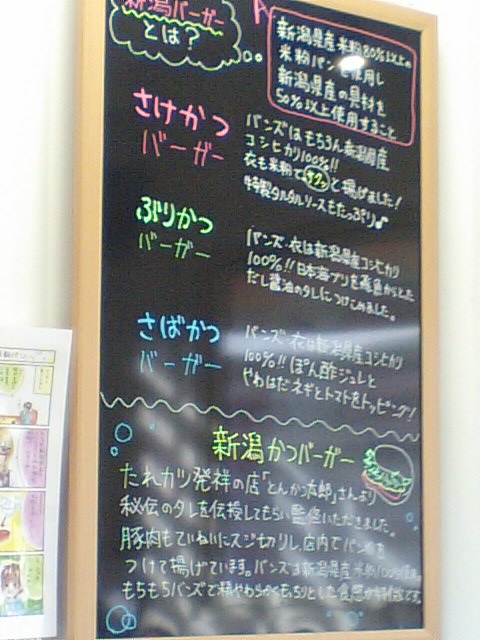 新潟バーガー
とは?
新潟県産米粉80%以上の
米粉パンを使用し
新潟県産の具材を
50%以上使用すること
さけかつ
バーガー
バンズはもちろん新潟県産
コシヒカリ100%!!
衣も米粉でサクッと揚げました!
特製タルタルソースもたっぷり♪
ぶりかつ
バーガー
バンズ・衣は新潟県産コシヒカリ
100%!!日本海ブリを魚からとった
だし醤油のタレにつけこみました。
さばかつ
バーガー
バンズ・衣は新潟県産コシヒカリ
100%!!ぽん酢ジュレと
やわはだネギとトマトをトッピング!
新潟かつバーガー
たれカツ発祥の店「とんかつ太郎」さんより
秘伝のタレを伝授してもらい監修いただきました。
豚肉もていねいにスジ切りし、店内でパン粉を
つけて揚げています。バンズは新潟県産米粉100%使用。
もちもちバンズで柔らかくもっちりとした食感が特徴です。